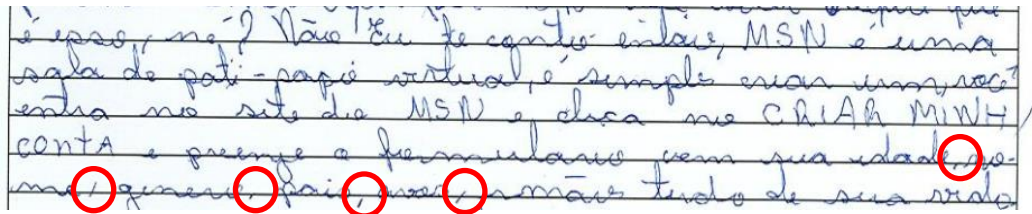 é isso, né? Não Eu te conto então, MSN é uma
sala de pati-papo virtual, é simple criar um, você
entra no site do MSN e clica no CRIAR MINH
CONTA e preenje o formulario com sua idade, no-
me, genero, pais, e mãis tudo de sua vida